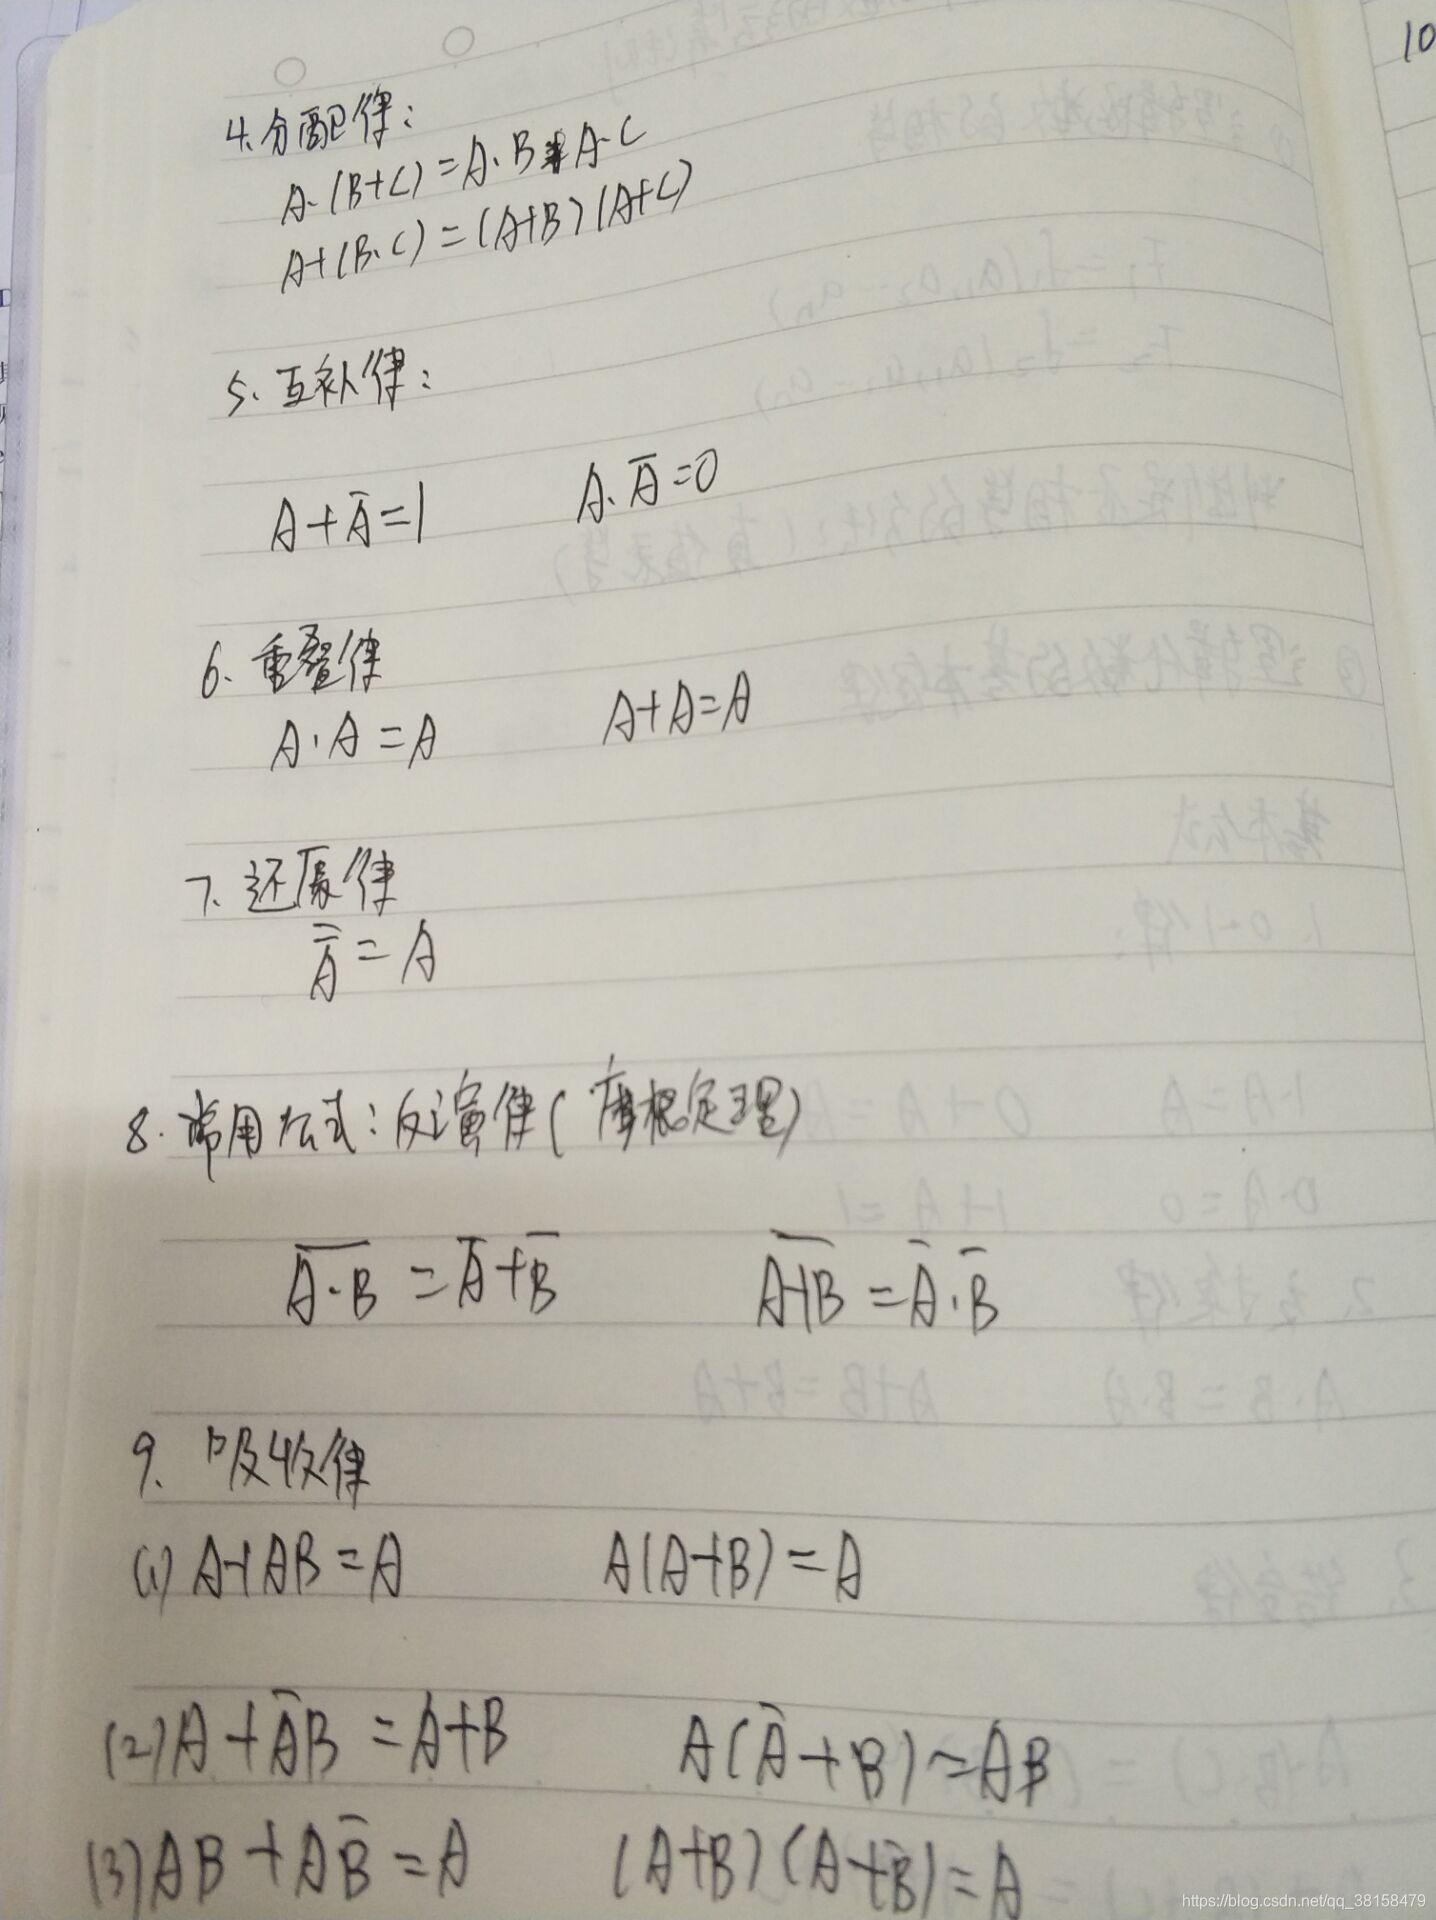 10
4.分配律：
A·(B+C)=A·B+A·C
A+(B·C)=(A+B)(A+C)
5.互补律：
A+A̅=1 A·A̅=0
6.重叠律
A·A=A A+A=A
7.还原律
A̿=A
8.常用公式：反演律(摩根定理)
A̅·̅B̅=A̅+B̅ A̅+̅B̅=A̅·B̅
9.吸收律
(1)A+AB=A A(A+B)=A
(2)A+A̅B=A+B A(A̅+B)=AB
(3)AB+AB̅=A (A+B)(A+B̅)=A
https://blog.csdn.net/qq_38158479